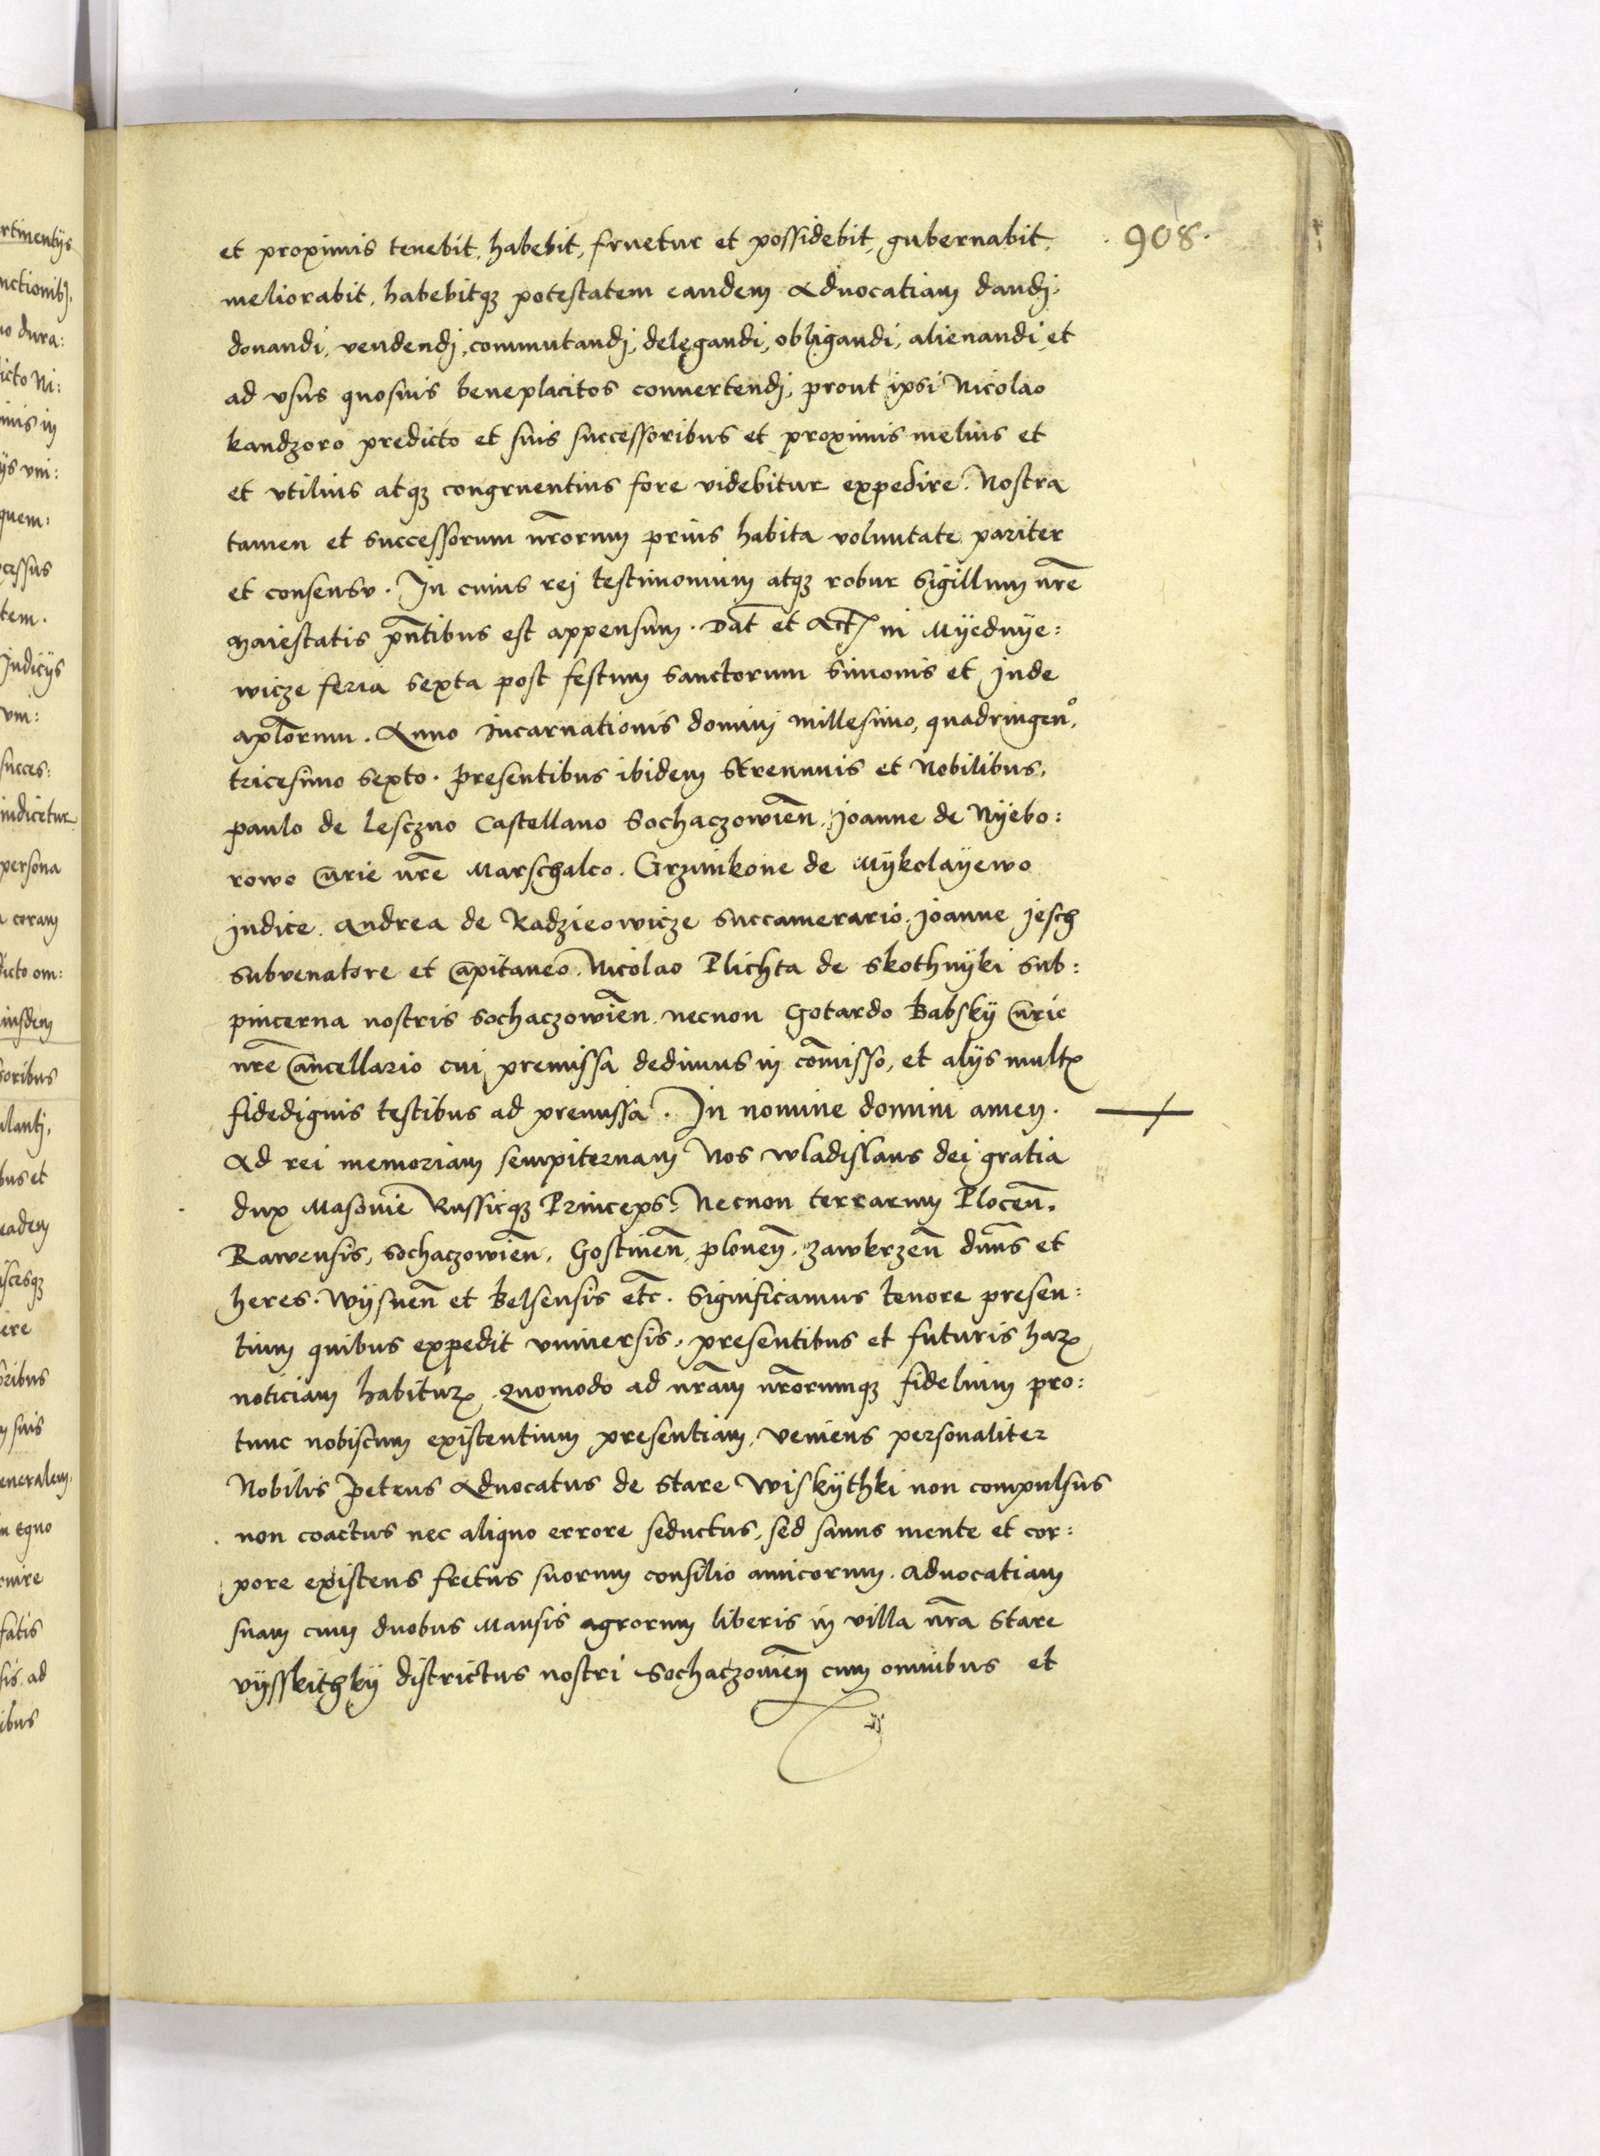 908.
et proximis tenebit, habebit, fruetur et possidebit, gubernabit,
meliorabit, habebitqȝ potestatem eandem Aduocatiam dandj,
donandi, vendendj, commutandj, delegandi, obligandi, alienandi et
ad vsus quosuis beneplacitos conuertendj, prout ipsi Nicolao
kandzoro predicto et suis successoribus et proximis melius et
et vtilius atqȝ congruentius fore videbitur expedire. Nostra
tamen et successorum nr̄orum prius habita voluntate pariter
et consensv. In cuius rej testimonium atqȝ robur Sigillum nr̄e
Maiestatis pn̄tibus est appensum. Dat̄ et Act in Myednye:
wicze feria sexta post festum sanctorum Simonis et Jude
apl̄orum. Anno Incarnationis dominj millesimo, quadringenº,
tricesimo sexto. Presentibus ibidem Strenuuis et Nobilibus,
paulo de Lesczno Castellano Sochaczowien̄, Joanne de Nyebo:
rowo Curie nr̄e Marschalco. Grzimkone de Mÿkolayewo
Judice, Andrea de Radzieowicze Succamerario, Joanne Jesch
subvenatore et Capitaneo, Nicolao Plichta de Skothnyki Sub:
pincerna nostris Sochaczowien̄, necnon Gotardo Babsky Curie
nr̄e Cancellario cui premissa dedimus in com̄isso, et alijs mult
fidedignis testibus ad premissa. In nomine domini amen.
Ad rei memoriam sempiternam Nos wladislaus dei gratia
dux Masouie Russieqȝ Princeps, Necnon terrarum Plocen̄.
Rawensis, Sochaczowien̄, Gostinen̄, plonen̄, zawkrzen̄ dn̄us et
heres. Wysnen̄ et Belsensis etc̄. Significamus tenore presen:
tium quibus expedit vniuersis, presentibus et futuris har
noticiam habitur. Quomodo ad nr̄am nr̄orumqȝ fidelium pro:
tunc nobiscum existentium presentiam, veniens personaliter
Nobilis Petrus Aduocatus de Stare Wiskythki non compulsus
non coactus nec aliquo errore seductus, sed sanus mente et cor:
pore existens fretus suorum consilio amicorum. Aduocatiam
suam cum duobus Mansis agrorum liberis in villa nr̄a Stare
vysskithky districtus nostri Sochaczowien̄ cum omnibus et